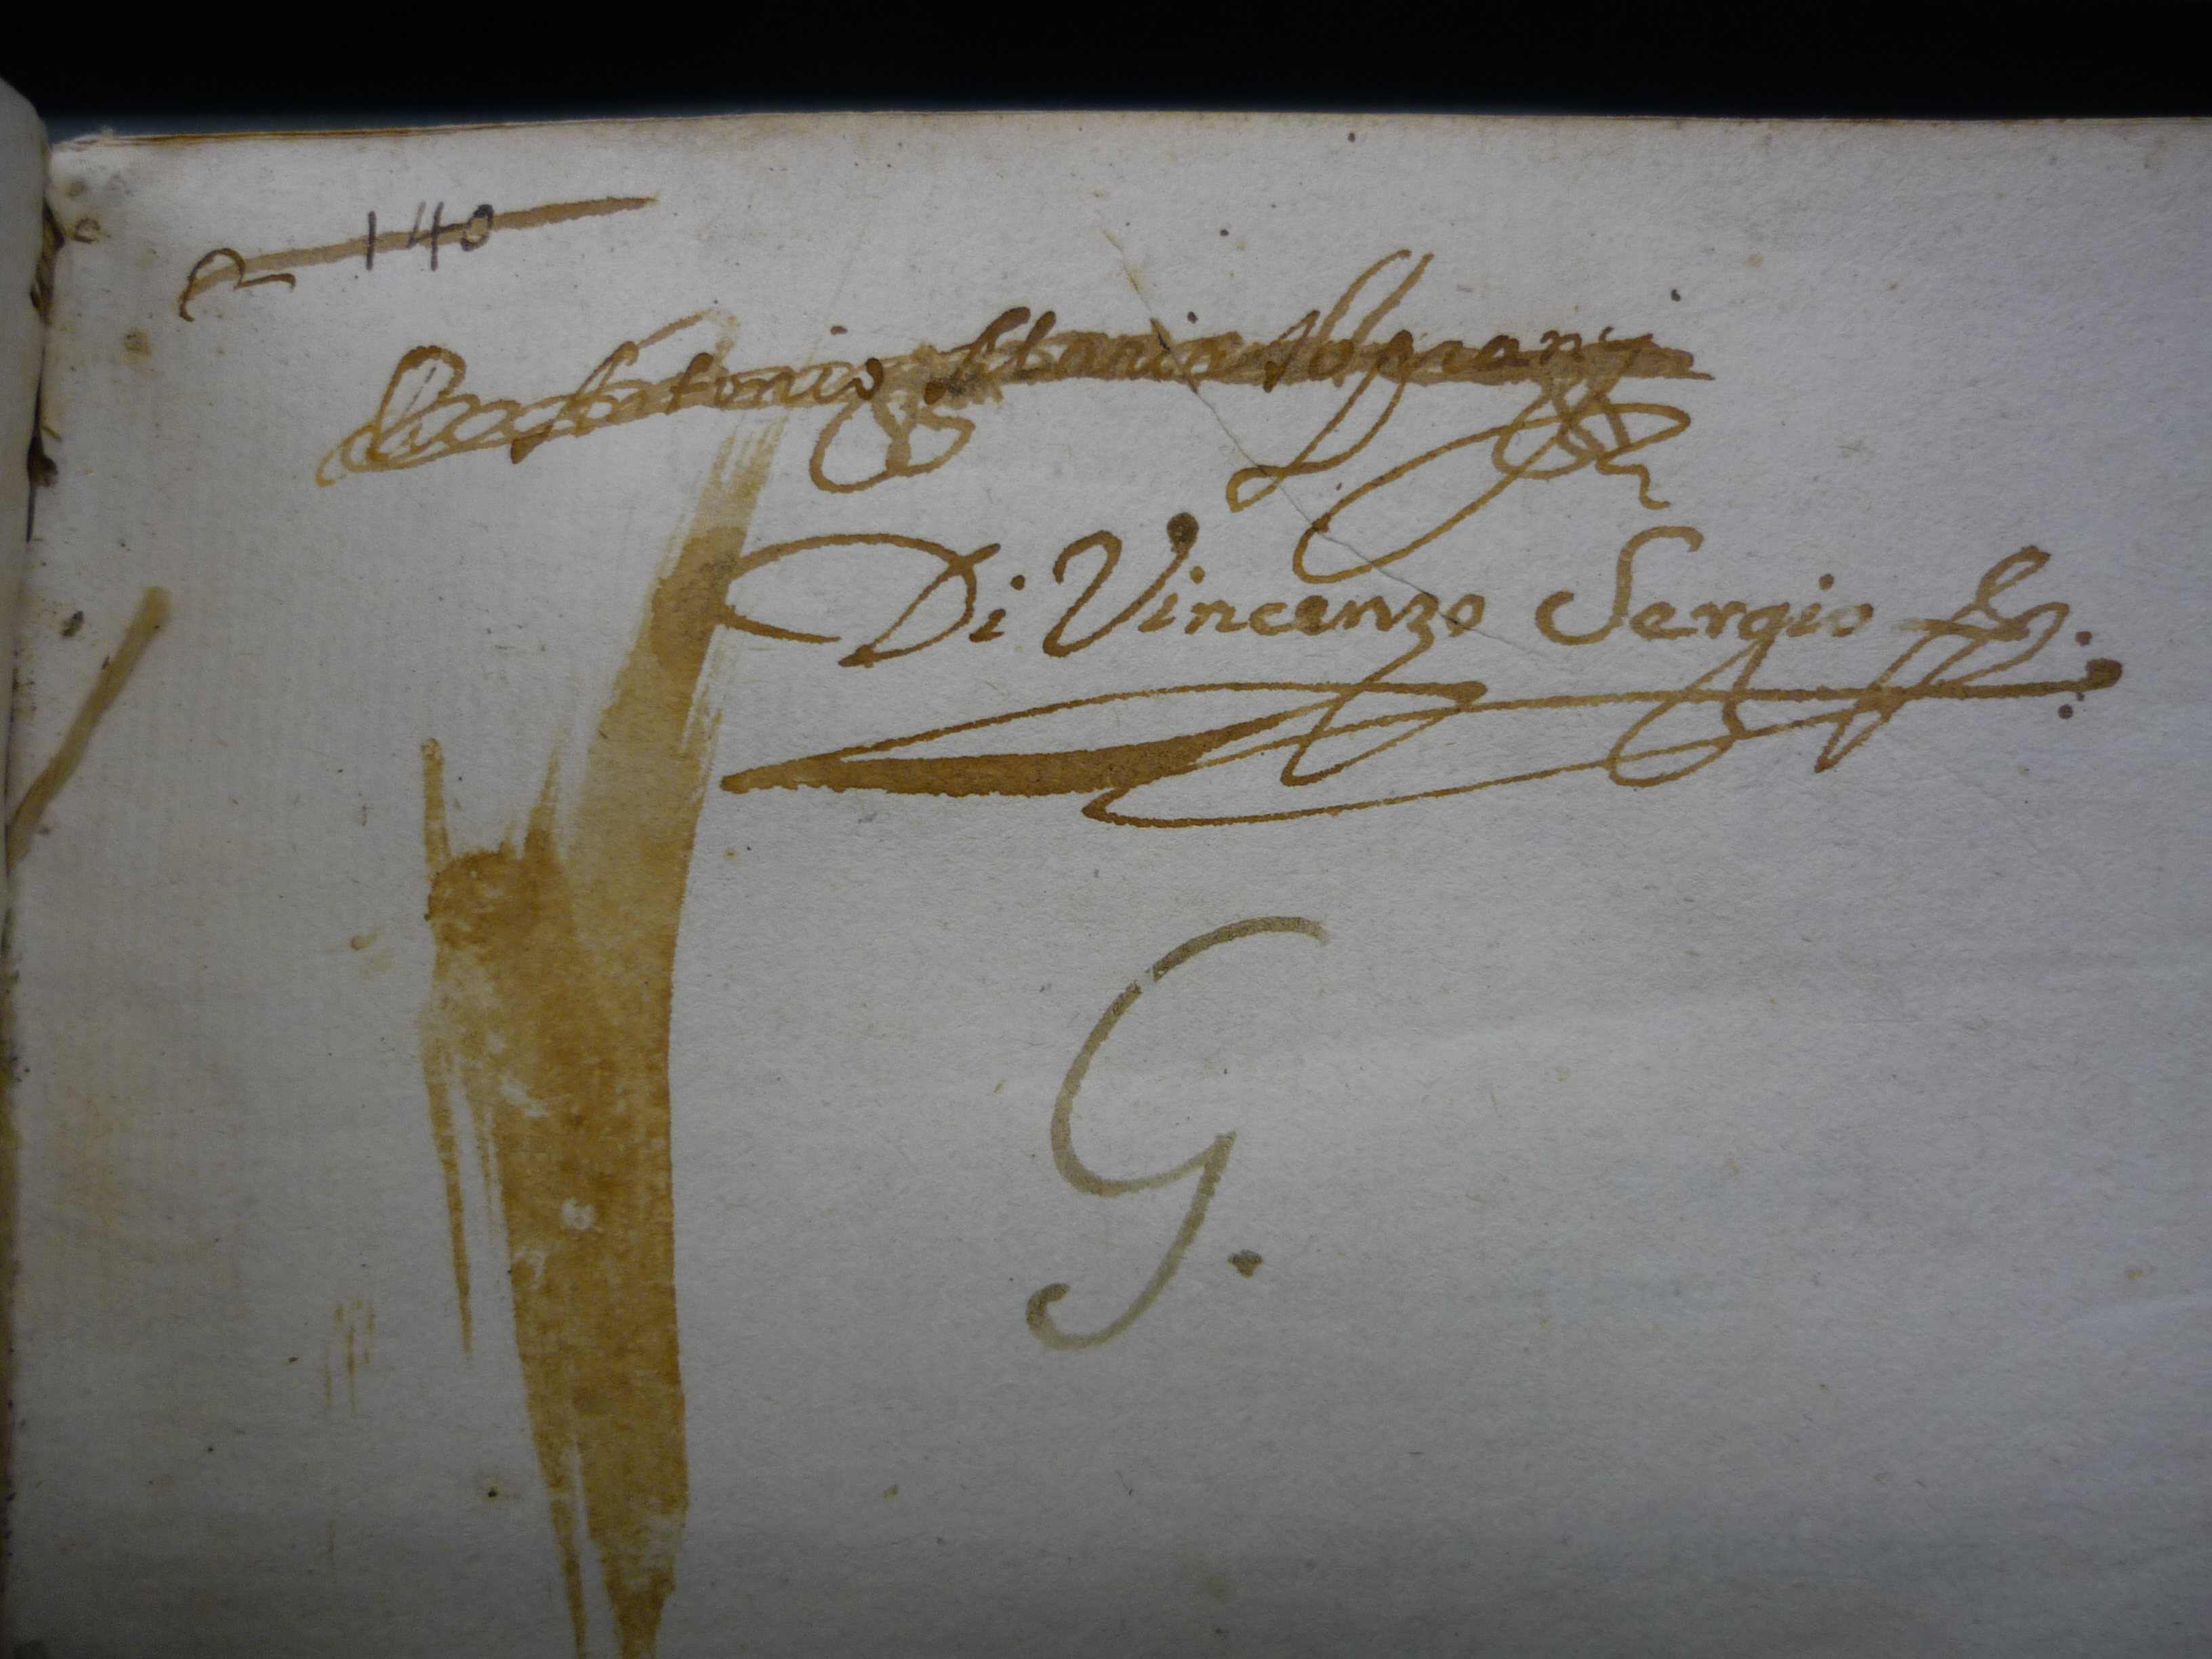 140
Antonio Maria
Di Vincenzo Sergio
G.